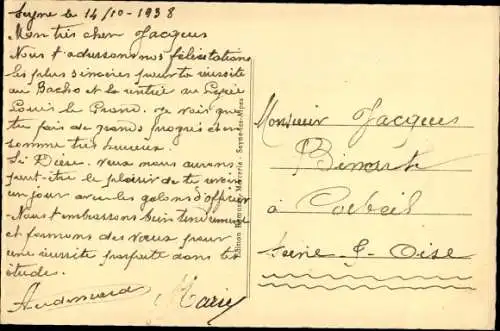 Seyne le 14/10-1938
Mon très cher Jacques
Nous t'adressons nos félicitations
les plus sincères pour ta réussite
au Bacho et ta entrée au Lycée
Louis le Grand. Je vois que
tu fais de grands progrès et en
somme très heureux.
Si Dieu veux nous aurons
peut-être le plaisir de te voir
un jour avec les galons d'officier
Nous t'embrassons bien tendrement
et formons des vœux pour
une réussite parfaite dans tes
étude.
Marie
Edition Marcerin - Seyne-les-Alpes
Monsieur Jacques
à Corbeil
Seine-&-Oise